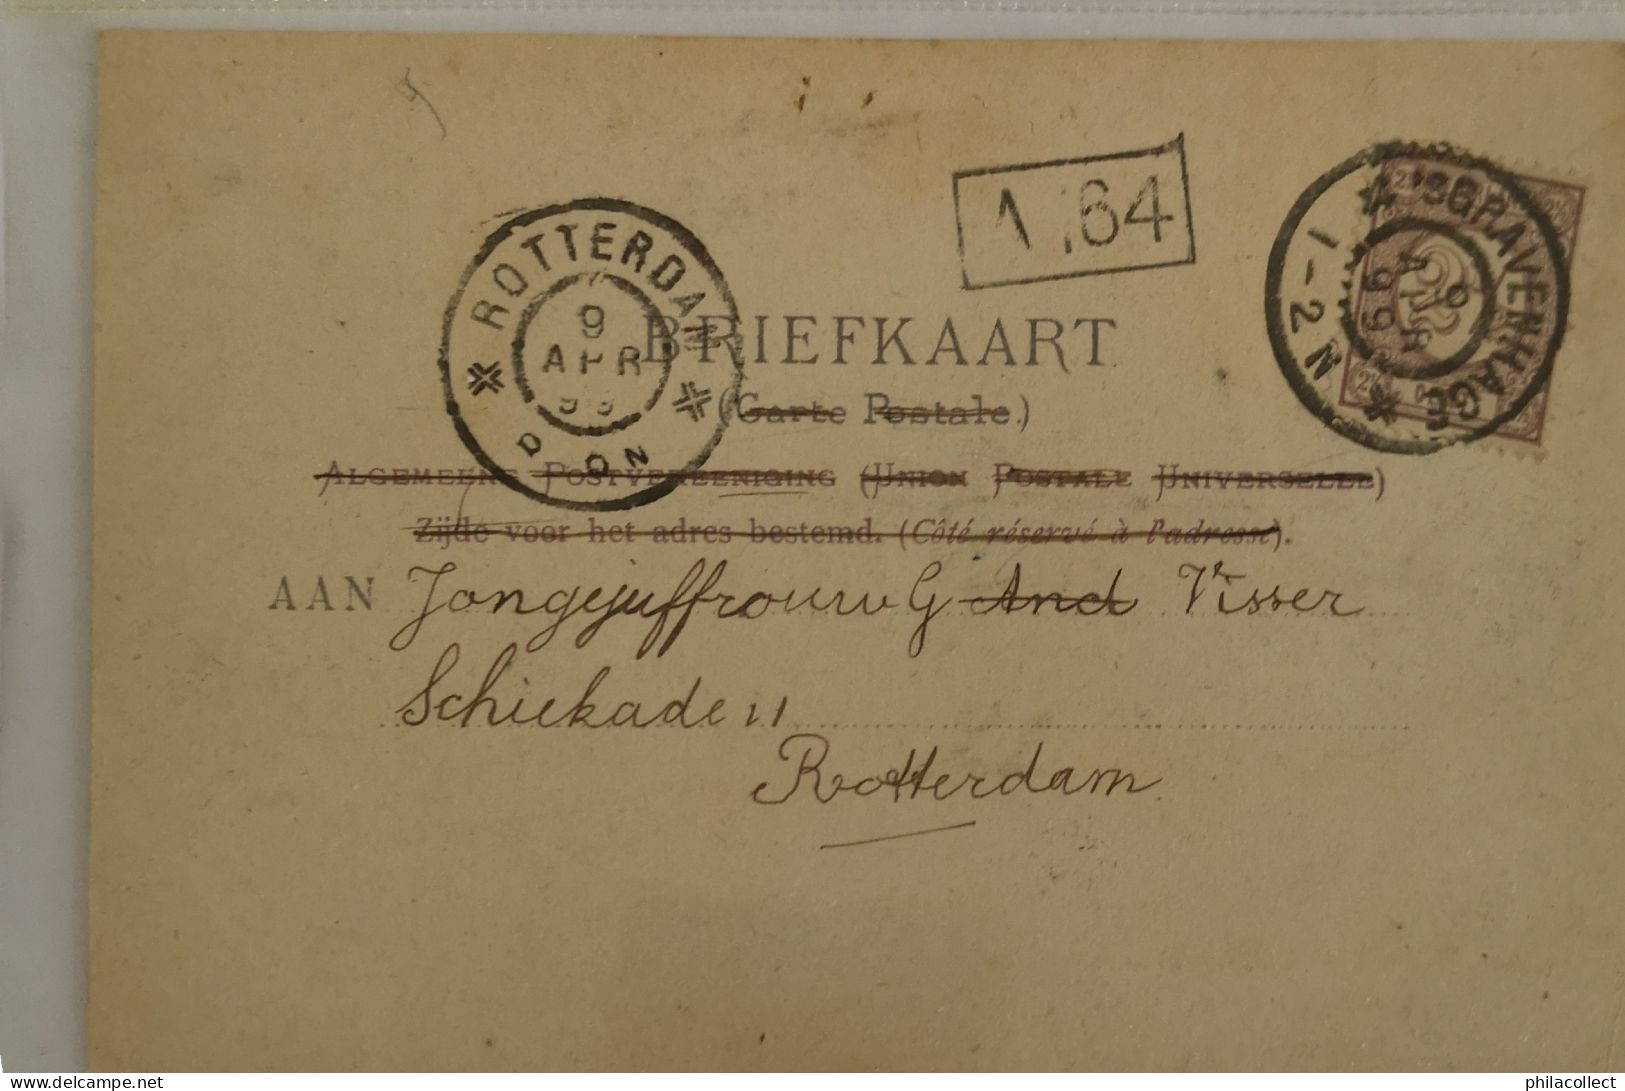 A 64
ROTTERDAM
9
APR
99
'SGRAVENHAGE
9
APR
99
1-2 N
BRIEFKAART
(Carte Postale.)
ALGEMEENE POSTVEREENIGING (UNION POSTALE UNIVERSELLE)
Zijde voor het adres bestemd. (Côté réservé à l'adresse).
AAN Jongejuffrouw G And Visser
Schiekade 11
Rotterdam
delcampe.net
philacollect